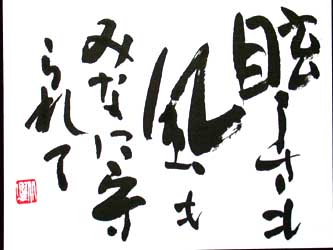 眩しさも
風も
みなに守
られて